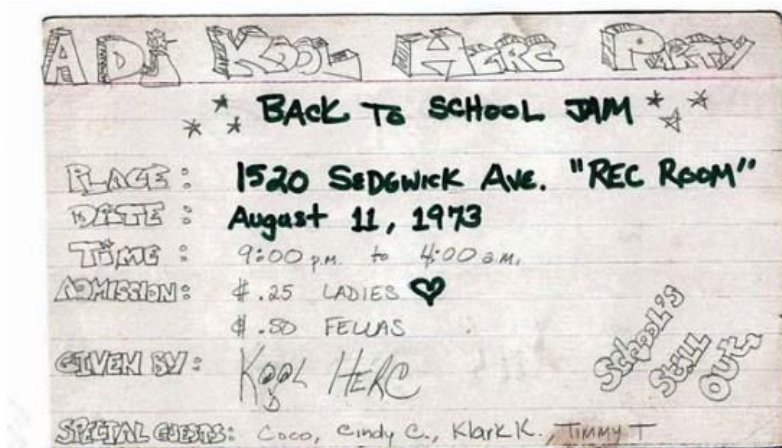 A DJ KOOL HERC PARTY
BACK TO SCHOOL JAM
PLACE: 1520 SEDGWICK AVE. "REC ROOM"
DATE: August 11, 1973
TIME: 9:00 p.m. to 4:00 a.m.
ADMISSION: $.25 LADIES ♥
$.50 FELLAS
SCHOOL'S STILL OUT!
GIVEN BY: KOOL HERC
SPECIAL GUESTS: Coco, Cindy C., Klark K., TIMMY T